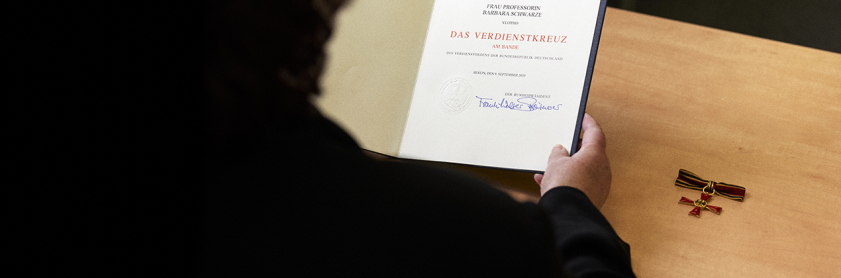 FRAU PROFESSORIN
BARBARA SCHWARZE
DAS VERDIENSTKREUZ
AM BANDE
DES VERDIENSTORDENS DER BUNDESREPUBLIK DEUTSCHLAND
DER BUNDESPRÄSIDENT